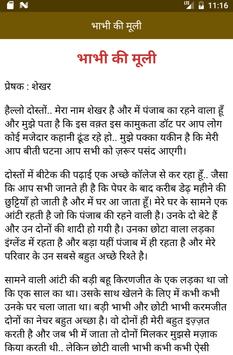 11:16
भाभी की मूली
भाभी की मूली
प्रेषक : शेखर
हैल्लो दोस्तों.. मेरा नाम शेखर है और में पंजाब का रहने वाला हूँ
और मुझे पता है कि इस वक़्त इस कामुकता डॉट पर आप लोग
कोई मजेदार कहानी ढूंढ रहे हो.. मुझे पक्का यकीन है कि मेरी
आप बीती घटना आप सभी को ज़रूर पसंद आएगी।
दोस्तों में बीटेक की पढ़ाई एक अच्छे कॉलेज से कर रहा हूँ.. जैसा
कि आप सभी जानते ही है कि पेपर के बाद करीब डेढ़ महीने की
छुट्टियाँ हो जाती है और में घर आ जाता हूँ। मेरे घर के सामने एक
आंटी रहती है जो कि पंजाब की रहने वाला है। उनके दो बेटे हैं
और उन दोनों की शादी हो गयी है। उनका छोटा वाला लड़का
इंग्लेंड में रहता है और बड़ा यहीं पंजाब में ही रहता है और मेरे
परिवार के उन सबसे बहुत अच्छे रिश्ते है।
सामने वाली आंटी की बड़ी बहू किरणजीत के एक लड़का था जो
कि एक साल का था। उसके साथ खेलने के लिए में कभी कभी
उनके घर चला जाता था। बड़ी भाभी और छोटी भाभी करमजीत
दोनों का नेचर बहुत अच्छा है। वो दोनों ही मेरी बहुत इज़्ज़त
करती है और जब भी में जाता तो दोनों मिलकर मुझसे मजाक
किया करती थी.. लेकिन छोटी वाली भाभी कभी कभी ऐसी